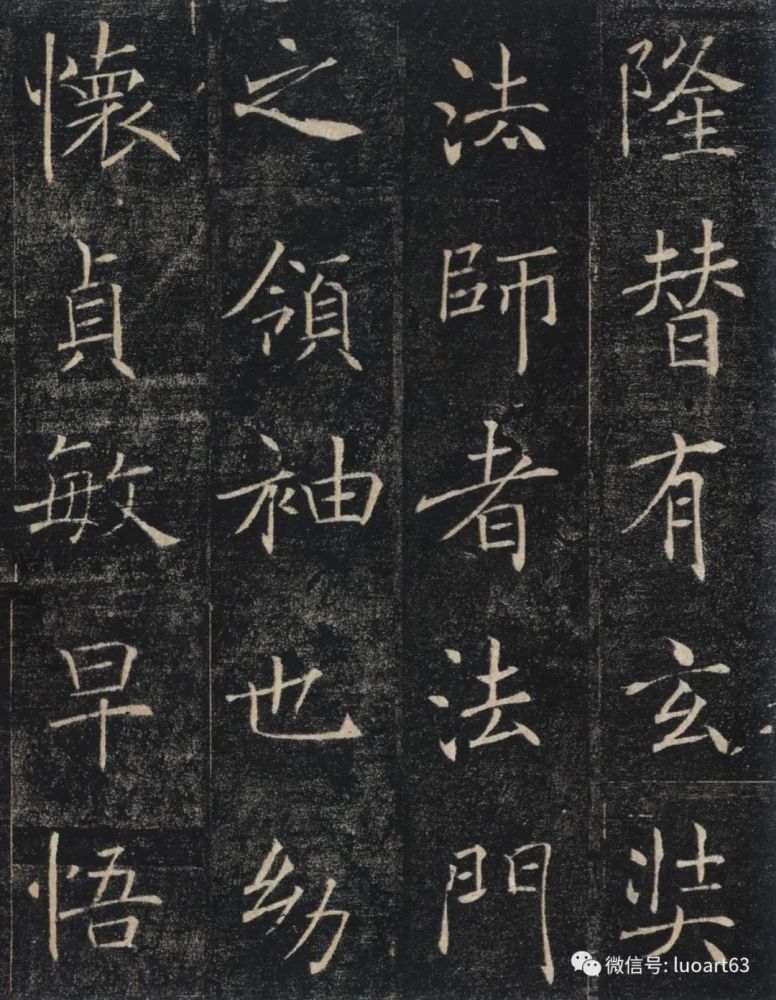 隆替有玄奘
法師者法門
之領袖也幼
懷貞敏早悟
微信号: luoart63